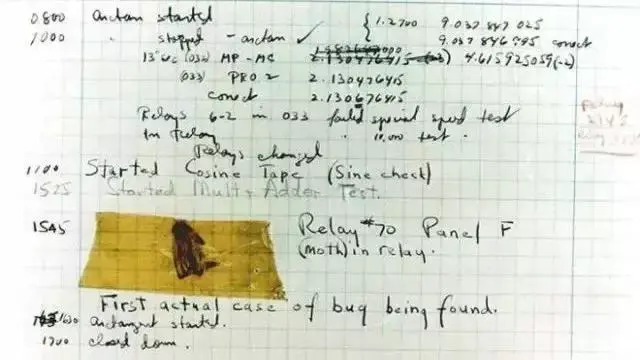 0800 arctan started { 1.2700 9.037 847 025
1000 " stopped - arctan ✓ 9.037 846 995 correct
(032) MP - MC 2.130476415 4.615925059(-2)
(033) PRO 2 2.130476415
correct 2.130676415
Relays 6-2 in 033 failed special speed test
In Relay " 10,000 test .
Relay
2145
Relay
Relays changed
1100 Started Cosine Tape (Sine check)
1525 Started Mult + Adder Test.
1545 Relay #70 Panel F
(Moth) in relay.
First actual case of bug being found.
1630 arctangent started.
1700 closed down.